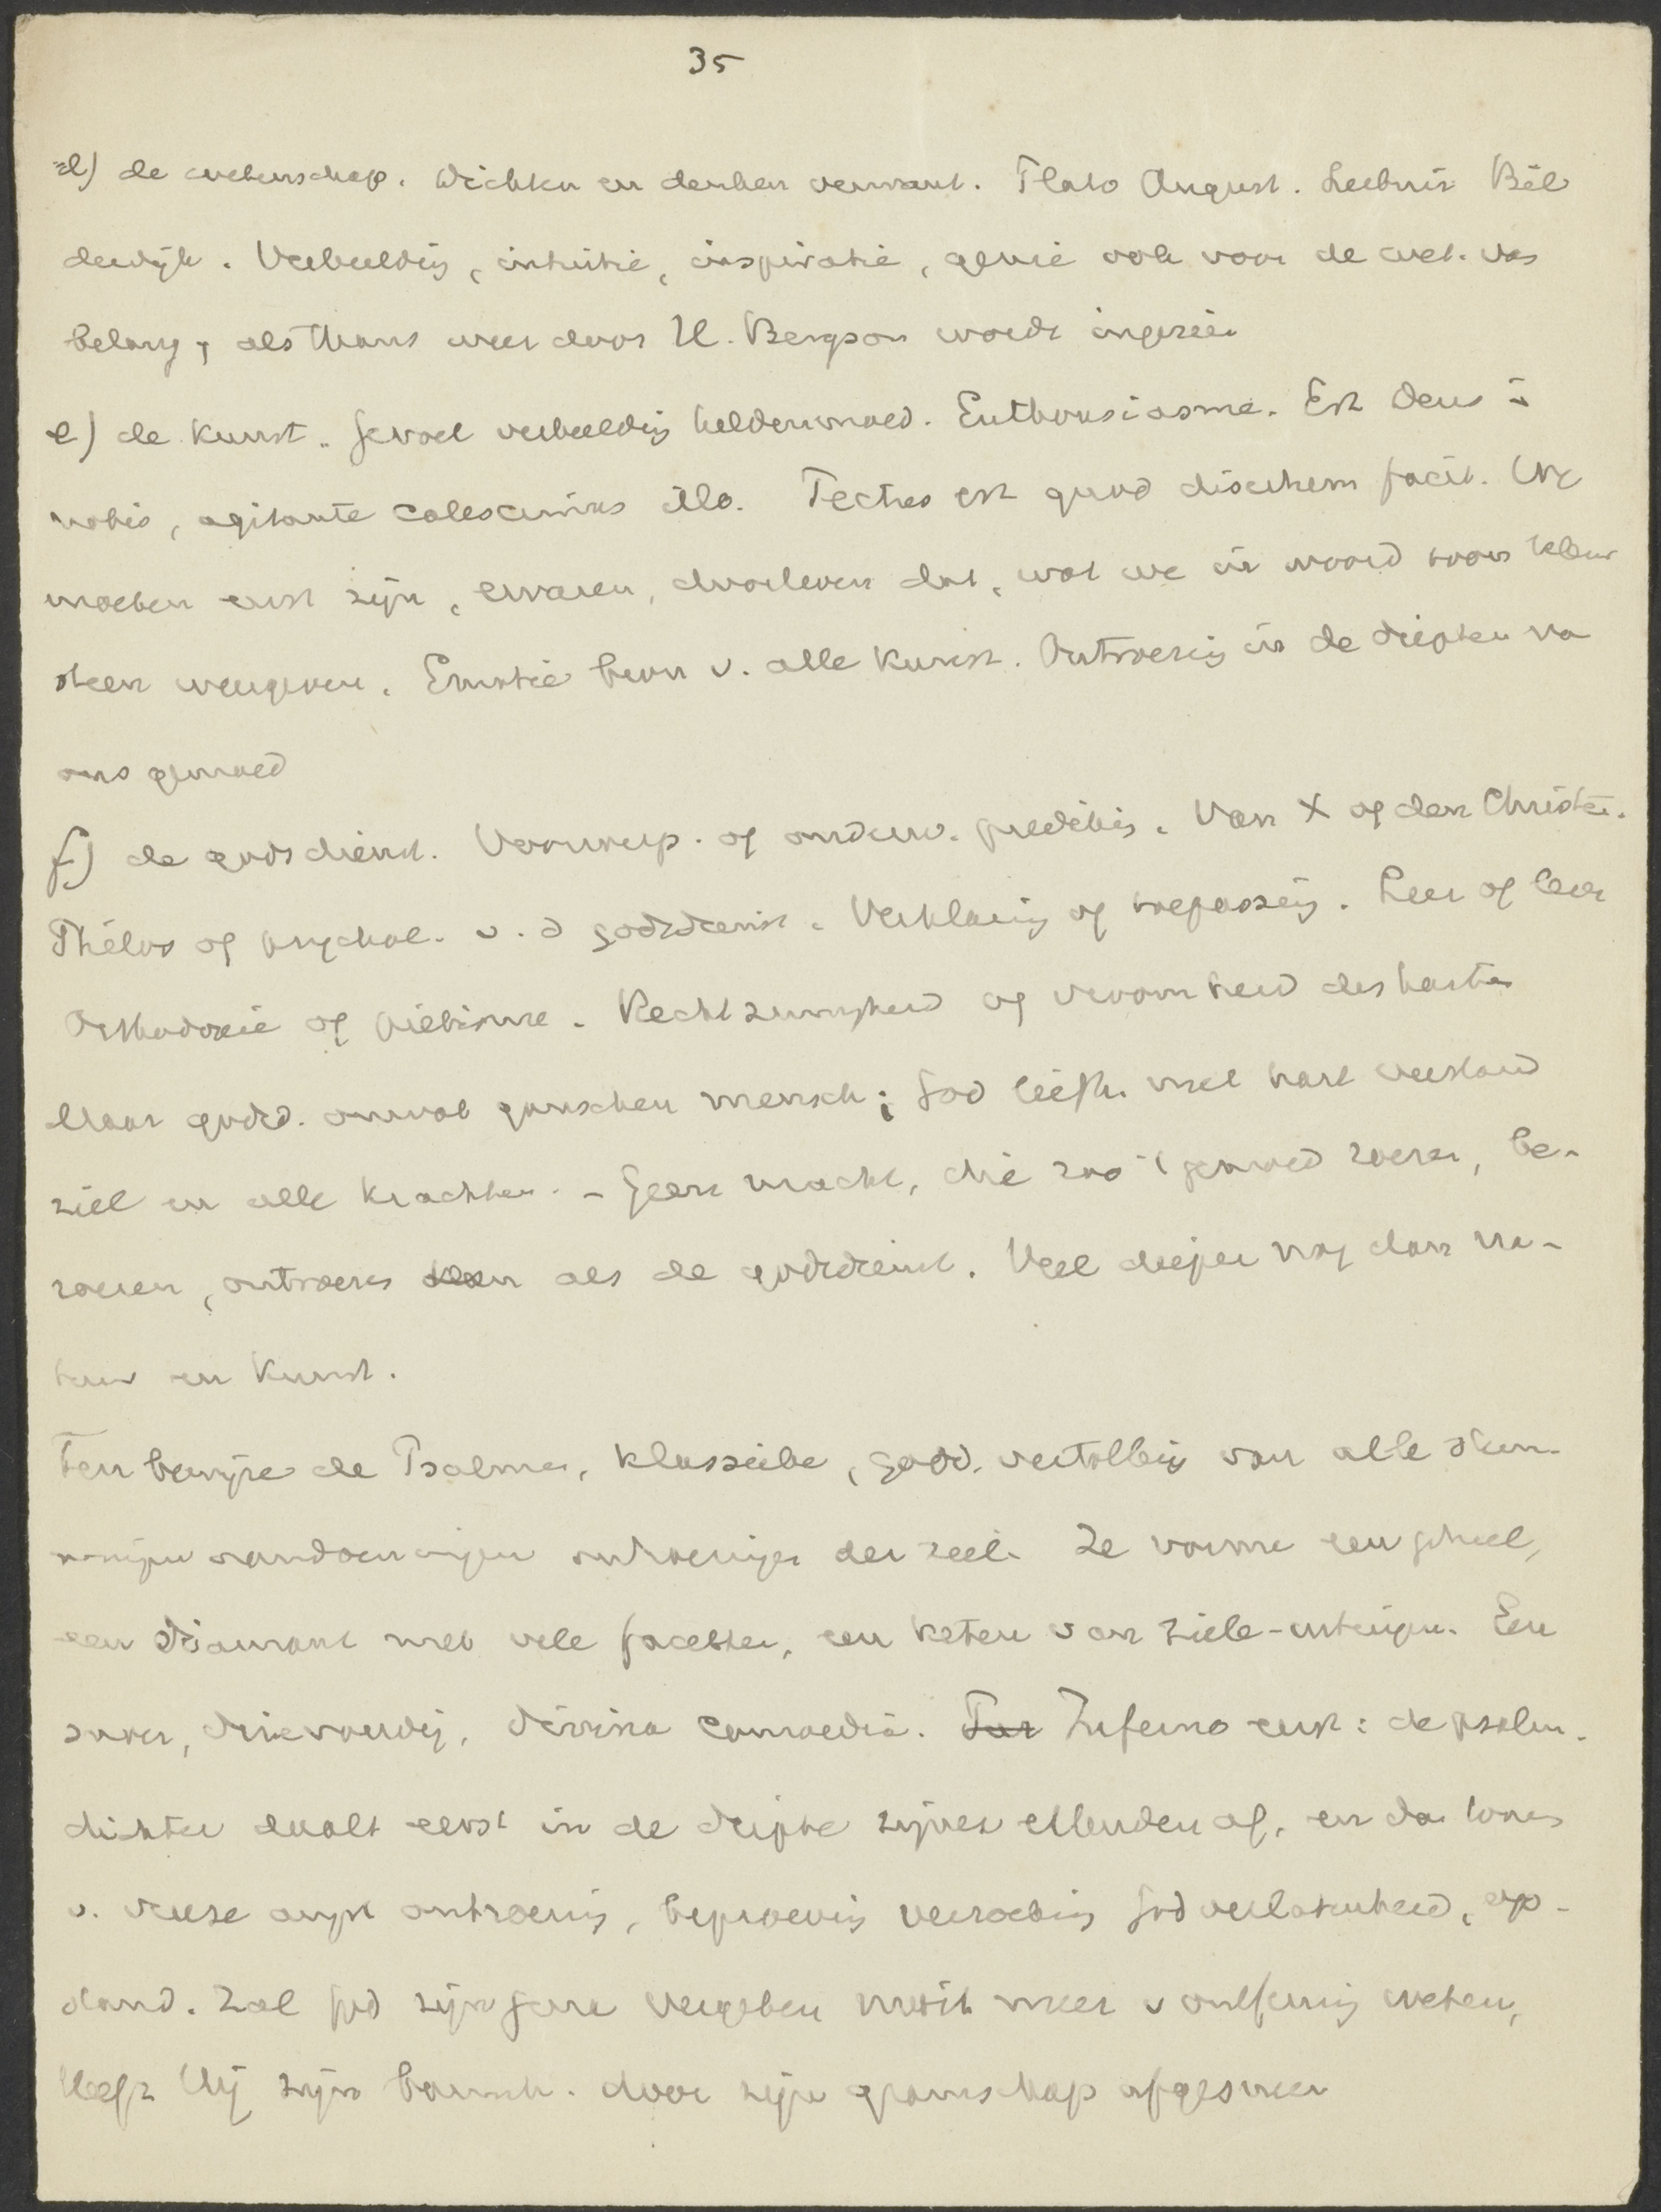 35
d) de wetenschap. Dichten en denken verwant. Plato August. Leibniz Bil
derdijk. Verbeeldig, intuitie, inspiratie, genie ook voor de wet. van
belang, als thans weer door H. Bergson wordt ingezien
e) de Kunst. Gevoel verbeeldig heldenmoed. Enthousiasme. Est Deus in
nobis, agitante calescimus illo. Pectus est quod disertum facit. We
moeten eerst zijn, ervaren, doorleven dat, wat we in woord toon kleur
steen weergeven. Emotie bron v. alle Kunst. Ontroerig in de diepten va
ons gemoed
f) de godsdienst. Voorwerp. of onderw. prediking. Van X of den Christen.
Theol of psychol. v. d godsdienst. Verklaring of toepassing. Leer of leven
Orthodoxie of piëtisme. Rechtzinnigheid of vroomheid des harten
Maar godsd. omvat ganschen mensch; God liefh. met hart verstand
ziel en alle krachten. - Geen macht, die zoo 't gemoed roeren, be-
roeren, ontroeren kan als de godsdienst. Veel dieper nog dan na-
tuur en Kunst.
Ten bewijze de Psalmen, klassieke, godd. vertolking van alle stem-
mingen aandoeningen ontroeringen der ziel. Ze vormen een geheel,
een Diamant met vele facetten, een keten van ziele-uitingen. Een
ware, drievoudig, divina comoedia. Inferno eerst: de psalm-
dichter daalt eerst in de diepte zijner ellenden af, en dan tonen
v. vreeze angst ontroering, beproeving verzoeking Godverlatenheid, op-
stand. Zal God zijn gena vergeten nooit meer v ontferming weten,
Heeft Hij zijn barmh. door zijn gramschap afgesneen